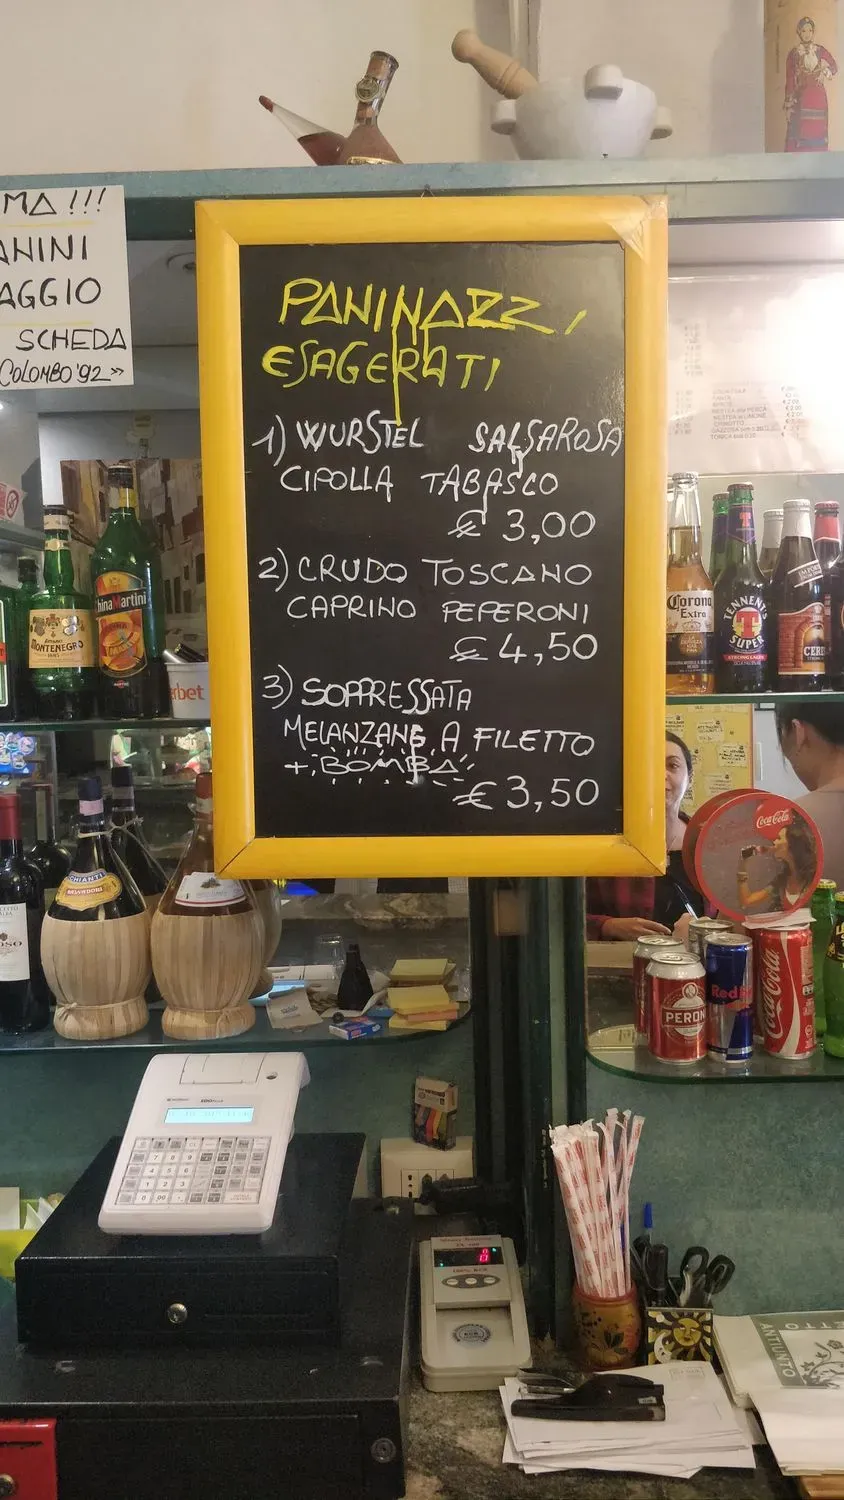 MA !!!
ANINI
AGGIO
SCHEDA
COLOMBO '92 »
PANINAZZI
ESAGERATI
1) WURSTEL SALSAROSA
CIPOLLA TABASCO
€ 3,00
2) CRUDO TOSCANO
CAPRINO PEPERONI
€ 4,50
3) SOPPRESSATA
MELANZANE A FILETTO
+ BOMBA
€ 3,50
MONTENEGRO
hinaMartini
rbet
Corona
Extra
TENNENT'S
T
SUPER
CHIANTI
Coca-Cola
PERONI
Red
Coca-Cola
ETTO
ANTIUNTO